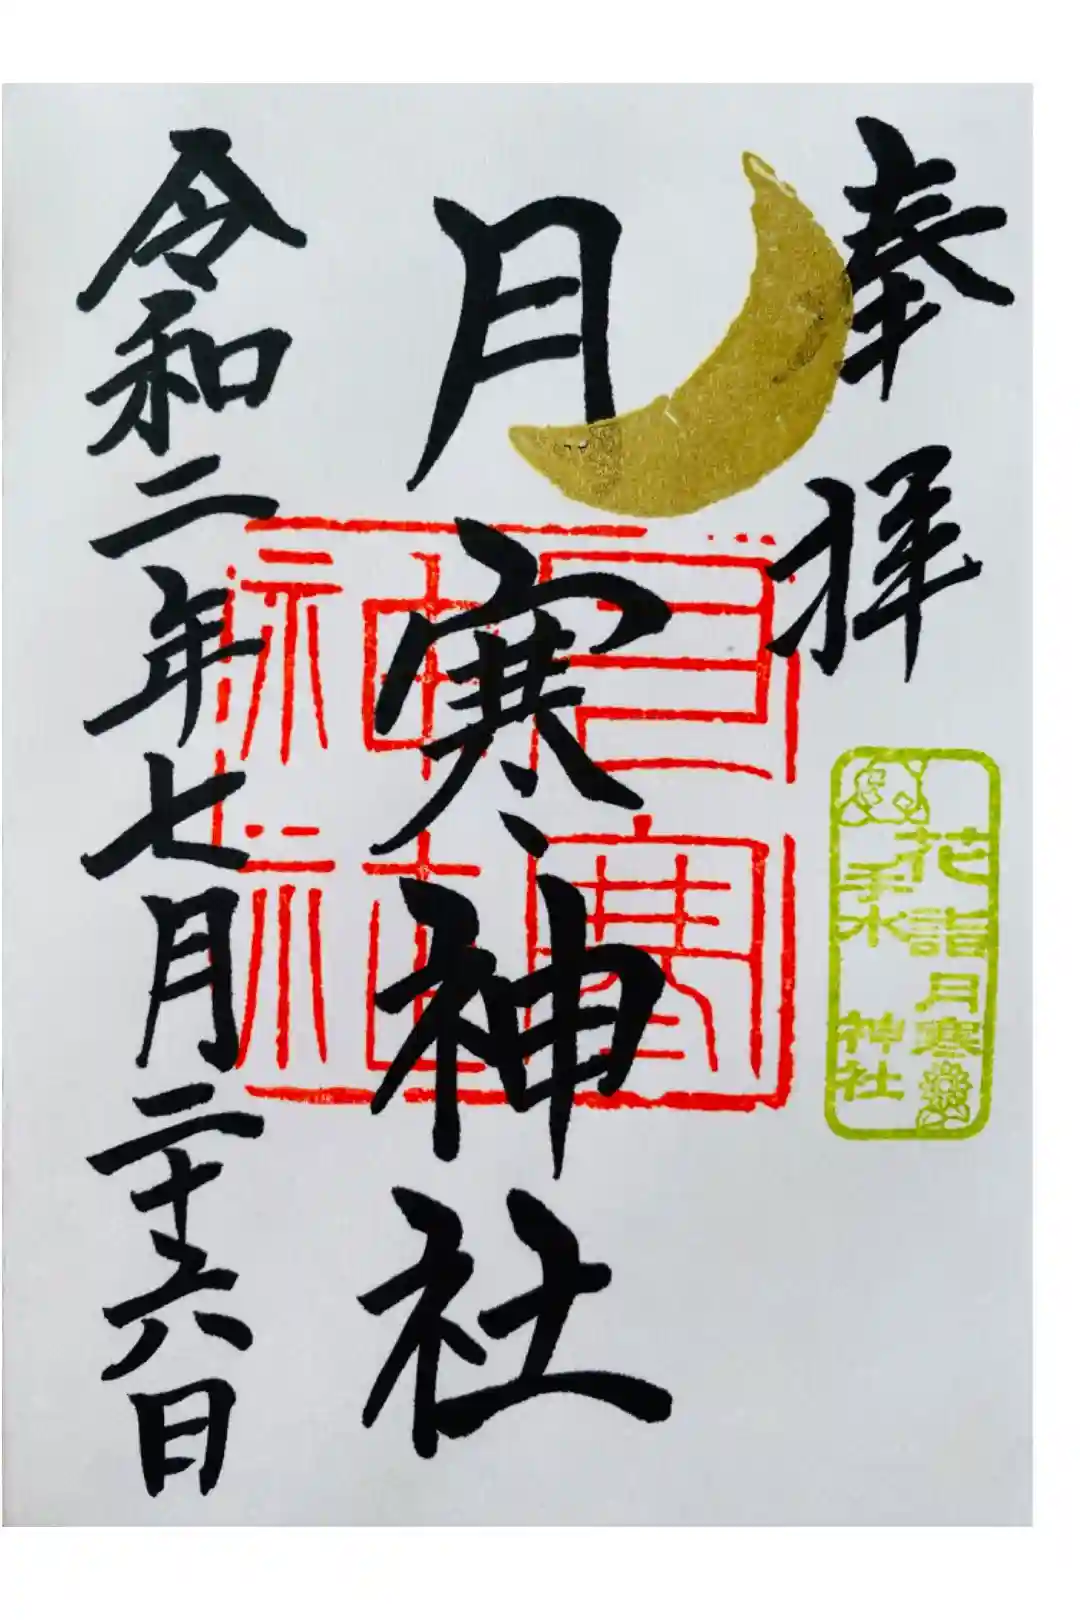 奉拝
月寒神社
令和二年七月二十六日
月寒
神社
花詣
手水
月寒
神社